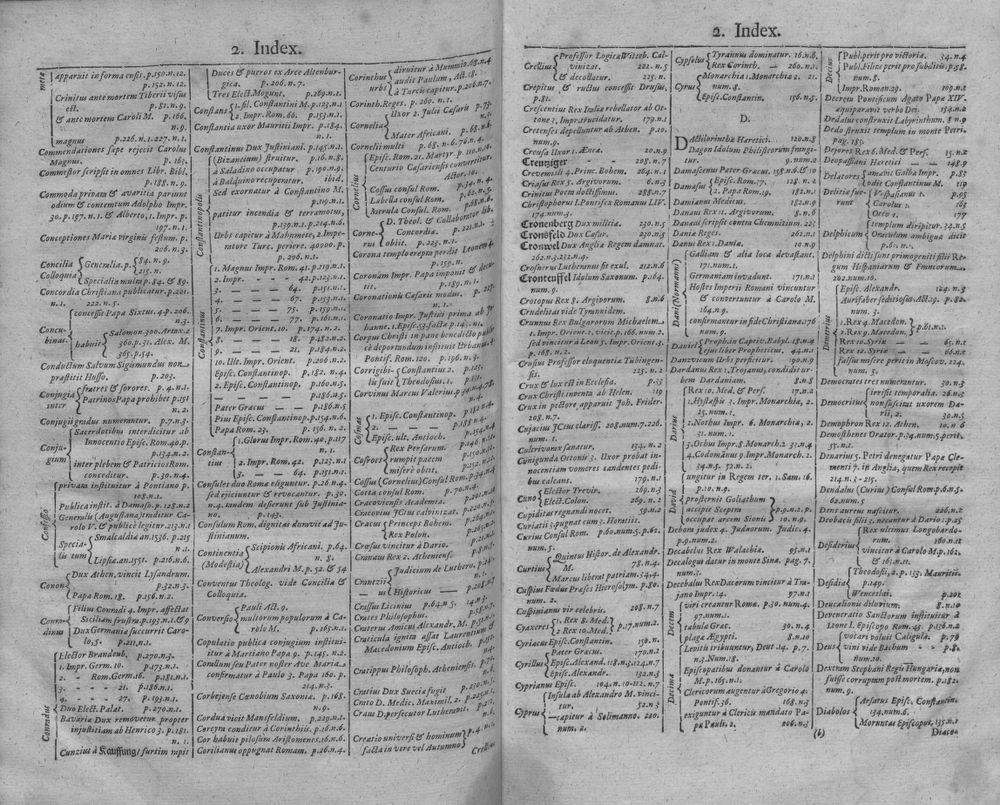 2. Index.
apparuit in forma ensis. p.150.n.12.
p.152.n.12.
Crinitus ante mortem Tiberii visus
est. p.81.n.9.
& ante mortem Caroli M. p.166.
n.9.
magnus p.226.n.1.227.n.1.
Commendationes sæpe rejecit Carolus
Magnus. p.163.
Commestor scripsit in omnes Libr. Bibl.
p.188.n.9.
Commoda privata & avaritia parunt
odium & contemtum Adolpho Impr.
30.p.197.n.1. & Alberto, 1. Impr. p.
197.n.1.
Conceptiones Mariæ virginis festum. p.
206.n.3.
Concilia
Colloquia
Generalia. p. 84.n.9.
215.n.
Specialia mult. p. 84. & 89.
Concordia Christiana publicatur. p.221.
n.1. 222.n.5.
Concu-
binas
concessit Papa Sixtus. 4. p.206.
n.3.
habuit
Salomon 300. Artax. 2
360.p.31. Alex. M.
365.p.54.
Conductum Salvum Sigismundus non
præstitit Husso. p.203.
Conjugia
inter
fratres & sorores. p.4.n.1.
Patrinos Papa prohibet p.151
n.2.
Conjugii gradus numerantur. p.7.n.3.
Conju-
gium
Sacerdotibus interdicitur ab
Innocentio Episc. Rom. 40.p.
134.n.2.
inter plebem & Patricios Rom.
conceditur. p.30.n.4.
Confessio
privatam instituit à Pontiano p.
108.n.1.
Publica instit. à Damaso. p.128.n.2
Generalis (Augustana) traditur Ca-
rolo V. & publicè legitur. 213.n.1
Specia-
lis tum
Smalcaldia an. 1536. p.215
n.1.
Lipsia. an. 1551. p.216.n.6.
Conon
Dux Athen. vincit Lysandrum.
p.32.n.3.
Papa Rom. 18. p.156.n.2.
Conra-
dinus
Filius Conradi 4. Impr. affectat
Siciliam frustra. p.193.n.1.&9
Dux Germaniæ succurrit Caro-
lo 5. p.211.n.1.
Conradus
Elector Brandenb. p.270.n.3.
1. Impr. Germ. 10. p.173.n.1.
2. - Rom. Germ. 16. p.181.n.1.
3. - - 21. p.186.n.1.
4. - - 27. p.193.n.1.
Dux Elect. Palat. p.270.n.1.
Bavariæ Dux removetur propter
injustitiam ab Henrico 3. p.181.
n.1.
Cunzius à Kauffung; furtim rapit
Duces & pueros ex Arce Altenbur-
gica. p.206.n.7.
Tres Elect. Mogunt. p.269.n.1.
Constans
1. fil. Constantini M. p.123.n.1
2. Impr. Rom. 66. p.153.n.1.
Constantia uxor Mauritii Impr. p.184.
n.1.
Constantinus Dux Justiniani. p.145.n.1
Constantinopolis
(Bizantium) struitur. p.16.n.8.
à Saladino occupatur. p.190.n.9.
à Balduino recuperatur. ibid.
Sed exornatur à Constantino M.
p.193.n.1.
patitur incendia & terramotus,
p.139.n.1.214.n.6.
Urbs capitur à Mahumete, 2. Impe-
ratore Turc. periere. 40000. p.
p.296.n.1.
Constantinus
1. Magnus Impr. Rom. 41. p.119.n.1.
2. Impr. - - 42. p.123.n.1.
3. - - 64. p.151.n.1.
4. - - 67. p.153.n.1.
5. - - 75. p.159.n.1.
6. - - 77. p.161.n.1.
7. Impr. Orient. 10. p.174.n.2.
8. - - 18. p.182.n.2.
9. - - 21. p.184.n.2.
10. Ult. Impr. Orient. p.206.n.1.
1. Episc. Constantinop. p.182.n.4.
2. Episc. Constantinop. p.160.n.5.
- - p.186.n.5.
Pater Græcus - p.186.n.5
Pius Episc. Constantinop. p.154.n.6.
Papa Rom. 23. p.156. n.2.
Constan-
tius
1. Glorus Impr. Rom. 40. p.117
n.1.
2. Impr. Rom. 42. p.123.n.1
3. - 64. p.151.n.1.
Consules duo Romæ eliguntur. p.26.n.4.
sed ejiciuntur & revocantur. p.30.
n.4. tandem deserunt sub Justinia-
no. p.145.
Consulum Rom. dignitas duravit ad Ju-
stinianum.
Continentia
(Modestia)
Scipionis Africani. p.64.
n.3.
Alexandri M. p.52. & 54
Conventus Theolog. vide Concilia &
Colloquia.
Conversio
Pauli Act. 9.
multorum populorum à Ca-
rolo M. p.165.n.1.
Copulatio publica conjugium institui-
tur à Martiano Papa 9. p.145.n.2.
Corollum seu Pater noster Ave Maria
confirmatur à Paulo 3. Papa 160. p.
214.n.3.
Corbejense Cœnobium Saxonia. p.168.
n.9.
Corduæ vicit Mansfeldium. p.229.n.1.
Corcyra conditur à Corinthiis. p.16.n.6.
Cor habuit pilosum Aristomenes. 16.n.6.
Corilianus oppugnat Romam. p.16.n.4.
Corinthus
urbs
diruitur à Mummio. 68.n.4
audit Paulum, Act. 18.
à Turcis capitur. p.206.n.7.
Corinth. Reges. p.260. n.1.
Cornelia
Uxor 2. Julii Cæsaris p.75
n.9.
Mater Africani. p.68.n.6
Cornelii multi p.68.n.6.76.n.6.
Cornelius
Episc. Rom. 21. Martyr. p.110.n.2.
Centurio Cæsariensis convertitur,
Actor. 10.
Cossus consul Rom. p.34.n.4.
Labella consul Rom.
Merula Consul. Rom. p.68.n.6.
Corne-
rus
D. Theol. & Collaborator lib.
Concordiæ. p.221.n.1.
obiit. p.223.n.1.
Corona templo erepta perdit Leonem 4
p.159.n.
Coronàm Impr. Papa imponit & detu-
lit. p.189.n.1.
Coronationis Cæsaris modus. p.
n.1.
Coronatio Impr. Justini prima ab Jo-
hanne. 1. Episc. 53. facta p.142.n.1
Corpus Christi in pane benedicto public.
deportandum instituit Urbanus 4.
Pontif. Rom. 120. p.196.n.3.
Corrigibi-
lis fuit
Constantius 2. p.125.
Theodosius. 1. p.131.
Corvinus Marcus Valerius. p.54.n.4.
Cosmas
1. Episc. Constantinop. p.182.n.4.
2. - - p.188.n.5.
Episc. ult. Antioch. p.
Cosroes
Rex Persarum.
rumpit pacem
miserè obiit. p.
Cossus (Cornelius) Consul Rom. p.34.
Cotta consul Rom. p.70.n.4.
Cracoviensis Academia. p.201.n.
Cracovius JCtus calvinizat. p.220.n.
Cracus
Princeps Bohem. p.
Rex Polon. p.
Cræsus vincitur à Dario.
Cranaus Rex 2. Atheniens. p.8.n.
Crantzii
Judicium de Luthero. p.
Historicus p.
Crassus Licinius p.64.n.5. 74.n.3.
Crates Philosophus
Craterus Amicus Alexandri M. p.
Craticula ignita assat Laurentium &
Macedonium Episc. Antioch. p.
n.5.
Cratippus Philosoph. Atheniensis. p.
n.
Cratius Dux Sueciæ fugit p.
Crato D. Medic. Maximil. 2. p.
Crau D. persecutor Lutheranor. p.
n.1.
Creatio universi & hominum p.4.n.1.
facta in vere vel Autumno
Crellius
2. Index.
Crellius
Professor Logica Witeb. Cal-
vinizat. 222.n.5
& decollatur. 225.n.
Crepitus & ructus concessit Drusus.
p.81.n.9.
Crescentius Rex Italiæ rebellator ab Ot-
tone 3. Impr. trucidatur. 179.n.1
Cretenses depelluntur ab Athen. p.10.
n.9.
Creusa Uxor 1. Ænea. 20.n.9.
Creutziger - - 208.n.7
Crevemisli 4. Princ. Bohem. 264.n.1
Criasus Rex 5. Argivorum. 6.n.3
Crinitus Poeta doctissimus. 288.n.7
Christophorus I. Pontifex Romanus LIV.
174.num.3.
Cronenberg Dux militiæ. 230.n.5
Cronsfeld Dux Cæsar. 230.n.5
Cronwel Dux Angliæ Regem damnat.
262.n.3.232.n.4.
Crosnerus Lutheranus fit exul. 212.n.6
Cronteuffel Idolum Saxonum. p.164.
num.9.
Crotopus Rex 8. Argivorum. 8.n.6
Crudelitas vide Tyrannidem.
Crunnus Rex Bulgarorum Michaelem.
1. Impr. Orient. 1. vicit. p.166.num.2.
sed vincitur à Leon 5. Impr. Orient. 4.
p.168.n.2.
Crusius Professor eloquentia Tubingen-
sis. 225.n.2
Crux & lux est in Ecclesia. p.35
Crux Christi inventa ab Helen. 19
Crux in pectore apparuit Joh. Frider.
208.n.7.
Cujacius JCtus clariss. 208.num.7.226.
num.1.
Cultri vomes sanatur. 134.n.2
Cunigunda Ottonis 3. Uxor probat in-
nocentiam vomeres candentes pedi-
bus calcant. 179.n.1
Cuno
Elector Trevir. 269.n.3
Elect. Colon. 269.n.2
Cupiditas regnandi nocet. 59.num.1
Curiatii 3. pugnat cum 3. Horatiis.
Curius Consul Rom. p.60.num.5. p.61.
num.5.
Curtius
Quintus Histor. de Alexandr.
M. 78.n.4.
Marcus liberat patriam. 34.4
Cuspius Fædus Præses Hierosolym. p.80.
num.2.
Cuspinianus vir celebris. 208.n.7
Cyaxeres
1. Rex 8. Med.
2. Rex 10. Med. p.17.num.2.
Cyriacus Episc. Constantin. 150.n.
Cyrillus
Pater Græcus. 170.n.1
Episc. Alexand. 118.n.3.124.n.7
Episc. Alexandrin. 132.n.5
Cyprianus Episc. 104.n.10-112.n.7
Cyprus
Insula ab Alexandro M. vinci-
tur. 52.n.3
capitur à Selimanno. 220.
num.2.
Cypselus
Tyrannus dominatur. 16.n.6.
Rex Corinth. - 260.n.1.
Cyrus
Monarchiæ 1. Monarcha 2. 21.
num.8.
Episc. Constantin. 156.n.5.
D.
Dactilorinthæ Heretici. 120.n.8
Dagon Idolum Philistæorum frangi-
tur. 9.num.2
Damascenus Pater Græcus. 158.n.6.&10
Damasus
Episc. Rom. 37. 128.n.2
2. Papa Rom. 19. 182.n.1
Damianus Medicus. 182.n.9
Danaus Rex 11. Argivorum. 8.n.6
Danauis scripsit contra Chemnitium. 22.
Daniæ Reges. 261.n.1
Danus Rex 1. Daniæ. 10.n.9
Dani (Normanni)
Galliam & alia loca devastant.
171.num.1.
Germaniam invadunt. 171.n.1
Hostes Imperii Romani vincuntur
& convertuntur à Carolo M.
164.n.9.
confirmantur in fide Christiana. 176
num.9.
Daniel
Proph. in Captiv. Babyl. 18.n.9
ejus liber Propheticus. 44.n.1
Danzvicum Urbs perpetitur. 190.n.9
Dardanus Rex 1. Trojanus, condit ur-
bem Dardaniam. 8.n.8
Darius
Rex 10. Med. & Pers. 17.n.2
1. Hystaspis 3. Impr. Monarch. 2.
25.num.1.
2. Nothus Impr. 6. Monarch. 2.
31.num.1.
3. Ochus Impr. 8. Monarch. 2. 31.n.4
4. Codomanus 9. Impr. Monarch. 2.
34.n.5.52.n.2.
David
ungitur in Regem ter. 1. Sam. 16.
p.10.n.9.
prosternit Goliathum
accipit Sceptrum p.9.n.2.p.
occupat arcem Sioni 10.n.9.
Debora Judex 4. Judæorum. Judic. 4.
p.9.num.2.
Decabelus Rex Walachiæ. 95.n.1
Decalogus datur in monte Sinai. pag. 7.
num.2.
Decebalus Rex Dacorum vincitur à Tra-
jano Impr. 14. p.97.n.1
Decem
viri creantur Romæ. p.30.num.4.
97.num.1.
tabulæ Græc. 30.n.4
plagæ Ægypti. 8.n.10
Decimæ
Levitis tribuuntur, Deut. 14. p.7.
n.3. Num. 18.
Episcopatibus donantur à Carolo
M. p.165.n.1.
Clericorum augentur à Gregorio 4.
Pontif. 36. 168.n.3
exiguntur à Clericis mandato Pa-
pæ Pauli 2. 206.n.3
Decius
Publ. perit pro victoria. 34.n.4
Publ. Filius perit pro subditis. p.58.
num.8.
Impr. Roman. 29. 109.n.1
Decreta Pontificum Agato Papa XIV.
æquiparavit verbo Dei. 154.n.2
Dedalus construxit Labyrinthum. 8.n.9
Dedo struxit templum in monte Petri.
pag. 185.
Dejoces Rex 6. Med. & Pers. 15.n.2
Deopassiani Heretici - - 148.9
Delatores
amavit Galba Impr. 87
odit Constantinus M. 119
Delitiæ fue-
runt
Vespasianus 1. p.93
Carolus 1. 163
Otto 1. 177
Delphicum
templum diripitur. 34.n.5
Oraculum ambigua dicit
p.61.n.1.
Delphini dicti sunt primogeniti filii Re-
gum Hispaniarum & Francorum.
202.num.10.
Demetrius
Episc. Alexandr. 124.n.3
Aurifaber seditiosus Act. 19. p.82.
num.3.
1. Rex 4. Macedon.
2. Rex 9. Macedon. p.61.n.1.
Rex 10. Syriæ - - 65.n.1
Rex 12. Syriæ - - 66.n.1
falsus miserè perit in Moscov. 224.
num.3.
Democrates tres numerantur. 30.n.3
Democritus
irrisit temporalia. 26.n.3
non suscitat uxorem Da-
rii, 2. 30.n.3
Demophron Rex 12. Athen. 10.n.6
Demosthenes Orator. p.34.num.5. perit.
57.n.1.
Denarius S. Petri denegatur Papæ Cle-
menti 7. in Anglia, quem Rex recepit
214.n.3-215.
Dendalus (Curius) Consul Rom. p.6.n.5.
62.num.5.
Dens aureus nascitur. 226.n.2
Deobacis filii 3. necantur à Dario. 1. p.25
Desiderius
Rex ultimus Longobardo-
rum. 160.n.11
vincitur à Carolo M. p.162.
n.11.
Desidia
Theodosii, 2. p.133. Mauritii.
p.149.
Wenceslai. p.202
Deucalionis diluvium. 8.n.10
Deuteronomio Sanctorum instituitur à
Leone I. Episcopo Rom. 45. p.136.n.2
Deus
vocari voluit Caligula. p.79
vini vide Bacchum p.8.
n.10.
Dextrum Stephani Regis Hungariæ, non
fuisse corruptum post mortem. p.182.
num.9.
Diabolos
Arsatus Episc. Constantin.
134.num.6.
Moruntas Episcopus. 135.n.1
(b) Diaco-